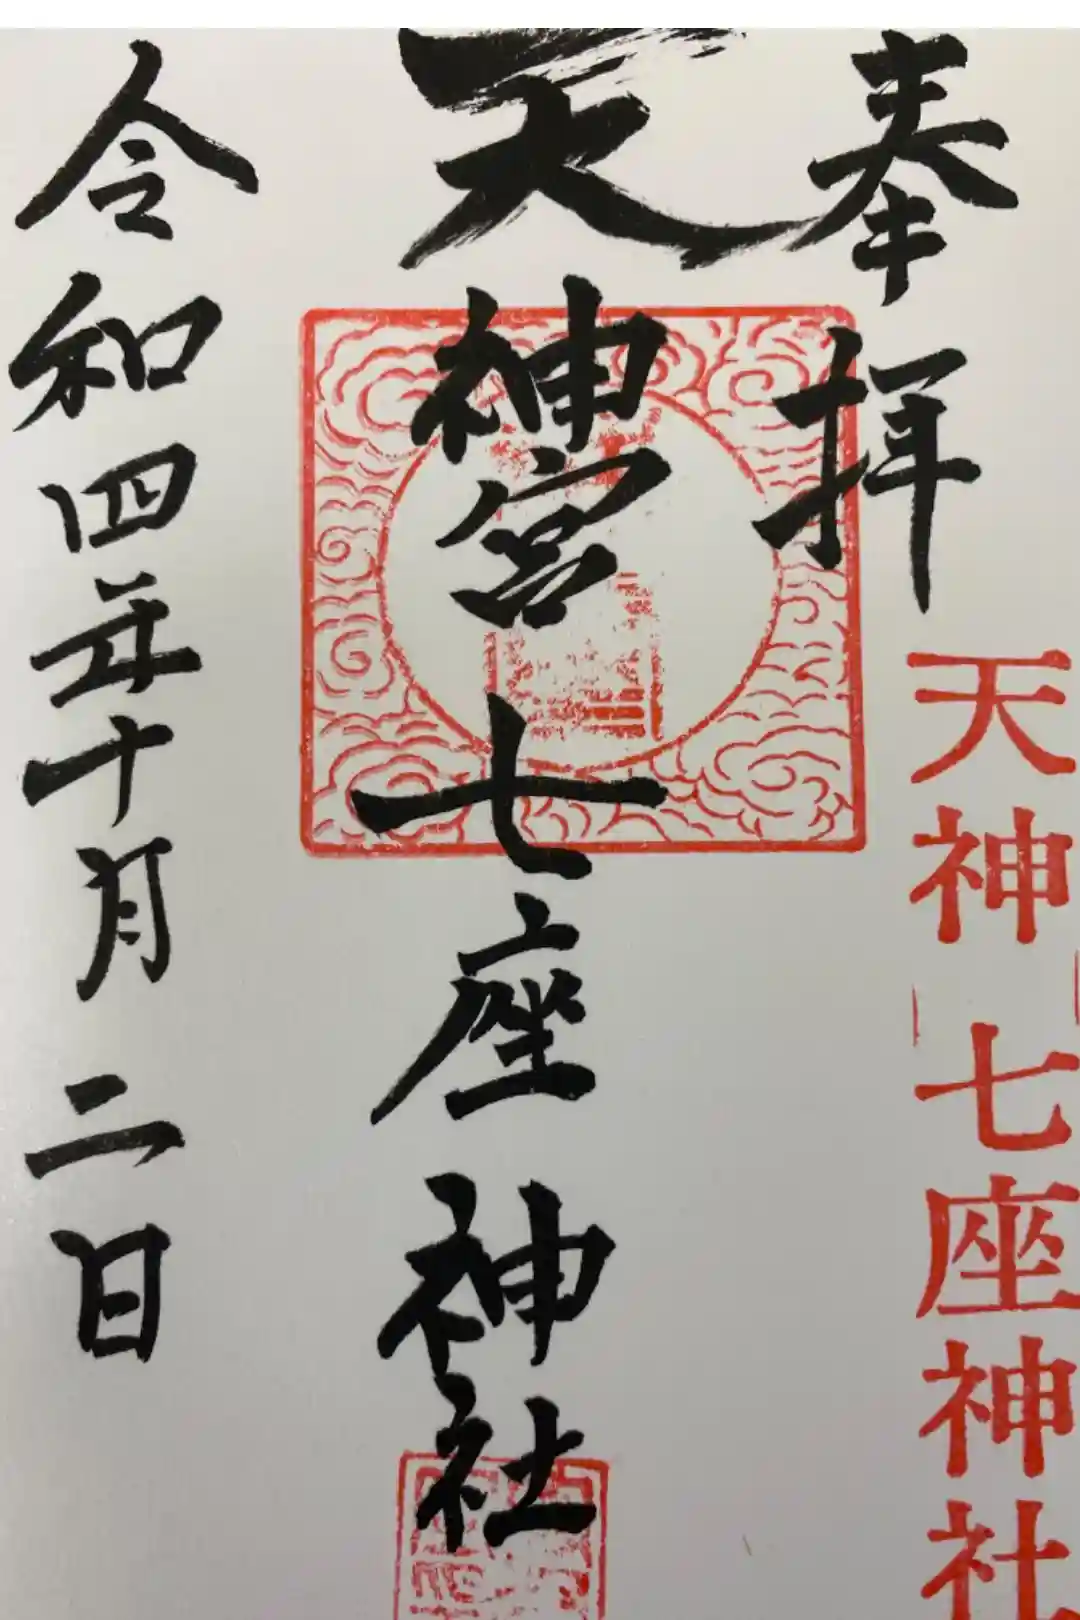 奉拝
天神七座神社
天神宮七座神社
令和四年十月二日